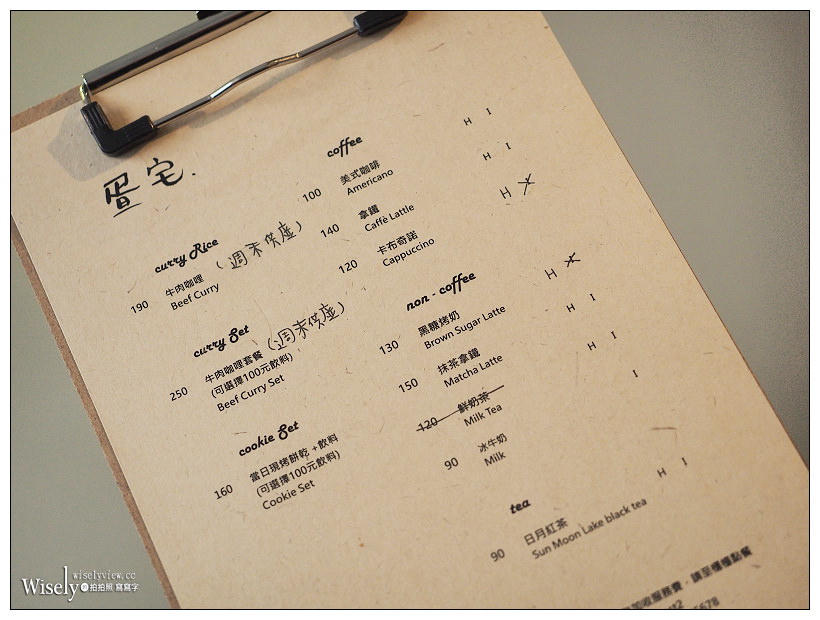 蛋宅.
curry Rice
(週末供應)
190 牛肉咖哩
Beef Curry
curry Set
(週末供應)
250 牛肉咖哩套餐
(可選擇100元飲料)
Beef Curry Set
cookie Set
160 當日現烤餅乾+飲料
(可選擇100元飲料)
Cookie Set
coffee
H I
100 美式咖啡
Americano
H I
140 拿鐵
Caffè Lattle
H I
120 卡布奇諾
Cappuccino
non - coffee
H I
130 黑糖烤奶
Brown Sugar Latte
H I
150 抹茶拿鐵
Matcha Latte
H I
120 鮮奶茶
Milk Tea
I
90 冰牛奶
Milk
tea
H I
90 日月紅茶
Sun Moon Lake black tea
加收服務費，請至櫃檯點餐
5678
wiselyview.cc
Wisely 拍拍照 寫寫字